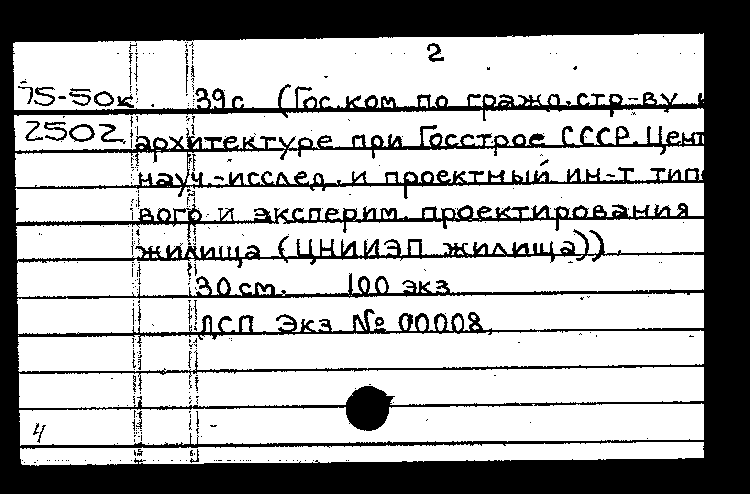 2
75-50к 39с (Гос.ком по гражд.стр-ву
2502 архитектуре при Госстрое СССР. Цент
науч.-исслед. и проектный ин-т типо
вого и эксперим. проектирования
жилища (ЦНИИЭП жилища)).
30см. 100 экз
ДСП Экз № 00008.
4